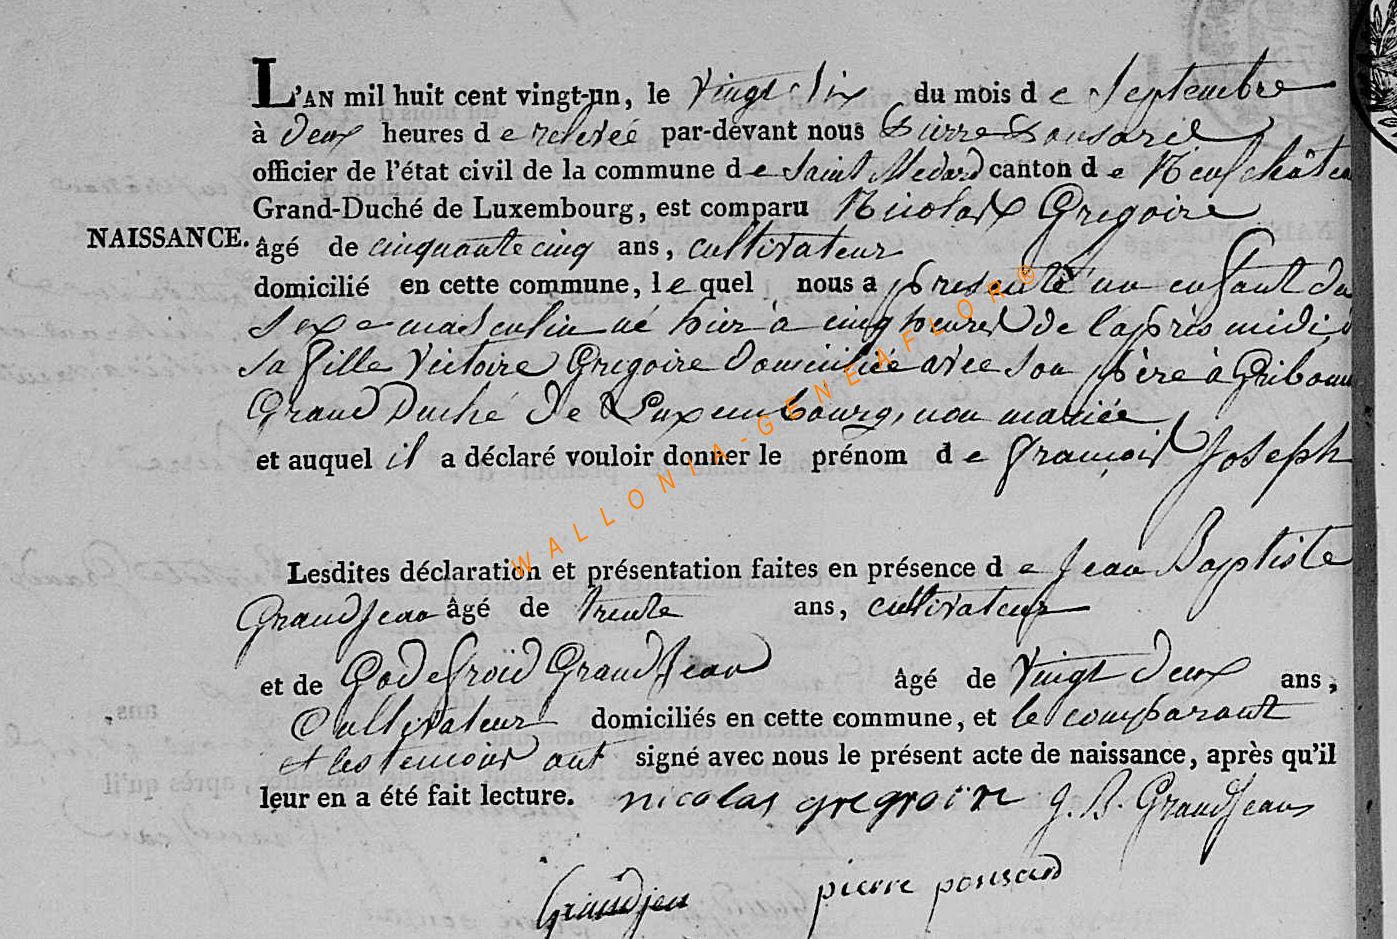 L'AN mil huit cent vingt-un, le vingt Six du mois de Septembre
à deux heures de relevée par-devant nous Pierre Ponsard
officier de l'état civil de la commune de Saint Medard canton de Neufchâteau
Grand-Duché de Luxembourg, est comparu Nicolas Gregoire
NAISSANCE. âgé de cinquante cinq ans, cultivateur
domicilié en cette commune, le quel nous a presenté un enfant du
Sexe masculin né hier à cinq heures de l'après midi
Sa fille Victoire Gregoire domiciliée avec son père à
Grand Duché de Luxembourg, non mariée
et auquel il a déclaré vouloir donner le prénom de François Joseph
Lesdites déclaration et présentation faites en présence de Jean Baptiste
GrandJean âgé de trente ans, cultivateur
et de Godefroid GrandJean âgé de Vingt deux ans,
Cultivateur domiciliés en cette commune, et le comparant
et les temoins ont signé avec nous le présent acte de naissance, après qu'il
leur en a été fait lecture. nicolas gregroire J. B. GrandJean
Grandjen pierre ponsard
WALLONIA-GENEAFLOR®